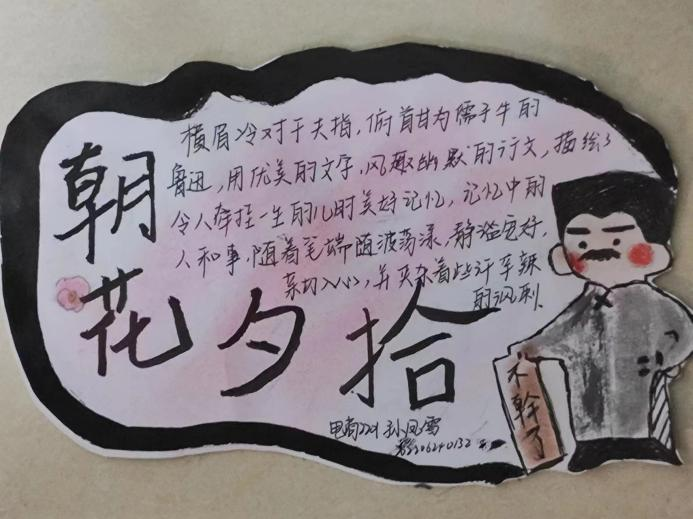 朝花夕拾
横眉冷对千夫指，俯首甘为孺子牛的
鲁迅，用优美的文字，风趣幽默的行文，描绘了
令人牵挂一生的儿时美好记忆，记忆中的
人和事，随着笔端随波荡漾，静溢安好，
亲切入心，并夹杂着些许辛辣
的讽刺
电商2201 孙凤雪
不幹了